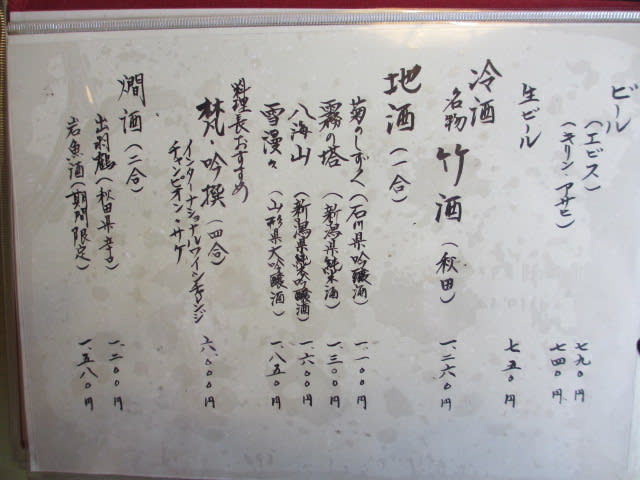 ビール
(エビス) 七九〇円
(キリン・アサヒ) 七四〇円
生ビール 七五〇円
冷酒
名物 竹酒 (秋田) 一、二六〇円
地酒 (一合)
菊のしずく (石川県吟醸酒) 一、一〇〇円
霧の塔 (新潟県純米酒) 一、三〇〇円
八海山 (新潟県純米吟醸酒) 一、六〇〇円
雪漫々 (山形県大吟醸酒) 一、八五〇円
料理長おすすめ
梵・吟撰 (四合) 六、〇〇〇円
インターナショナルワインチャレンジ
チャンピオン・サケ
燗酒 (二合)
出羽鶴 (秋田県辛口) 一、二〇〇円
岩魚酒 (期間限定) 一、五八〇円